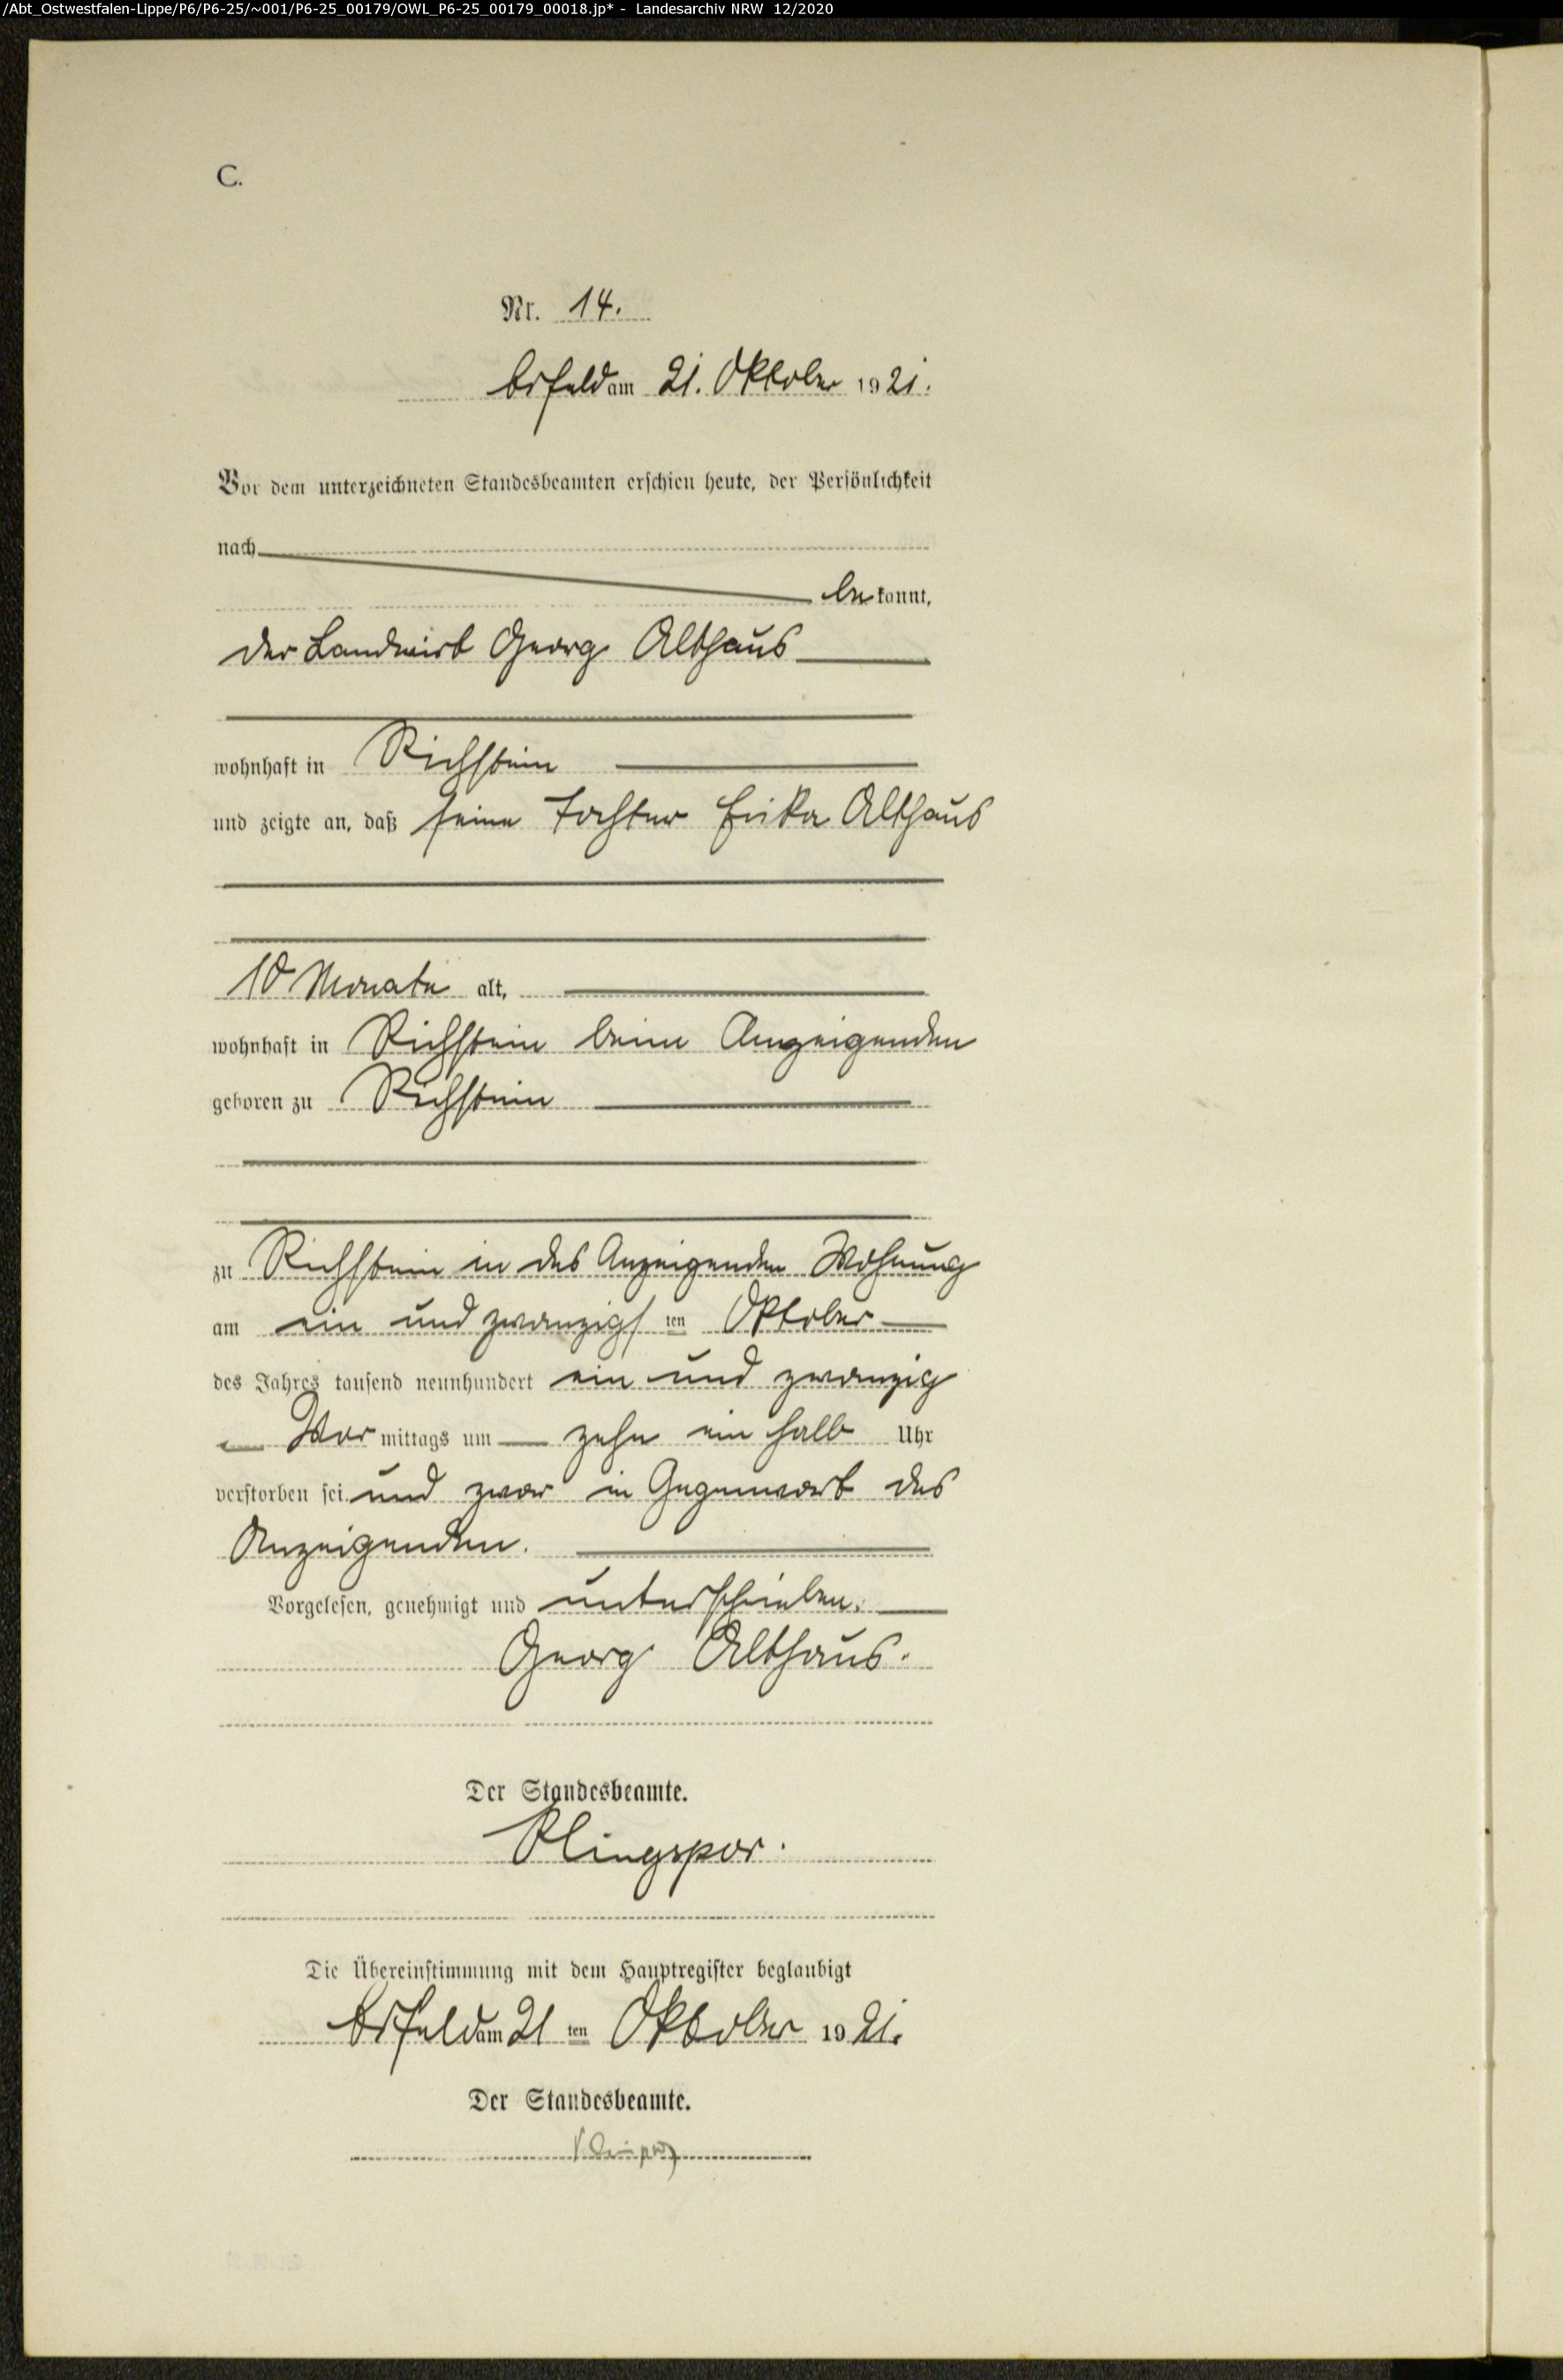 /Abt_Ostwestfalen-Lippe/P6/P6-25/~001/P6-25_00179/OWL_P6-25_00179_00018.jp* - Landesarchiv NRW 12/2020
C.
Nr. 14.
Arfeld am 21. Oktober 1921.
Vor dem unterzeichneten Standesbeamten erschien heute, der Persönlichkeit
nach
bekannt,
der Landwirt Georg Althaus
wohnhaft in Richstein
und zeigte an, daß seine Tochter Erika Althaus
10 Monate alt,
wohnhaft in Richstein beim Anzeigenden
geboren zu Richstein
zu Richstein in des Anzeigenden Wohnung
am ein und zwanzigsten Oktober
des Jahres tausend neunhundert ein und zwanzig
Vormittags um zehn ein halb Uhr
verstorben sei und zwar in Gegenwart des
Anzeigenden.
Vorgelesen, genehmigt und unterschrieben.
Georg Althaus.
Der Standesbeamte.
Klingspor.
Die Übereinstimmung mit dem Hauptregister beglaubigt
Arfeld am 21 ten Oktober 1921.
Der Standesbeamte.